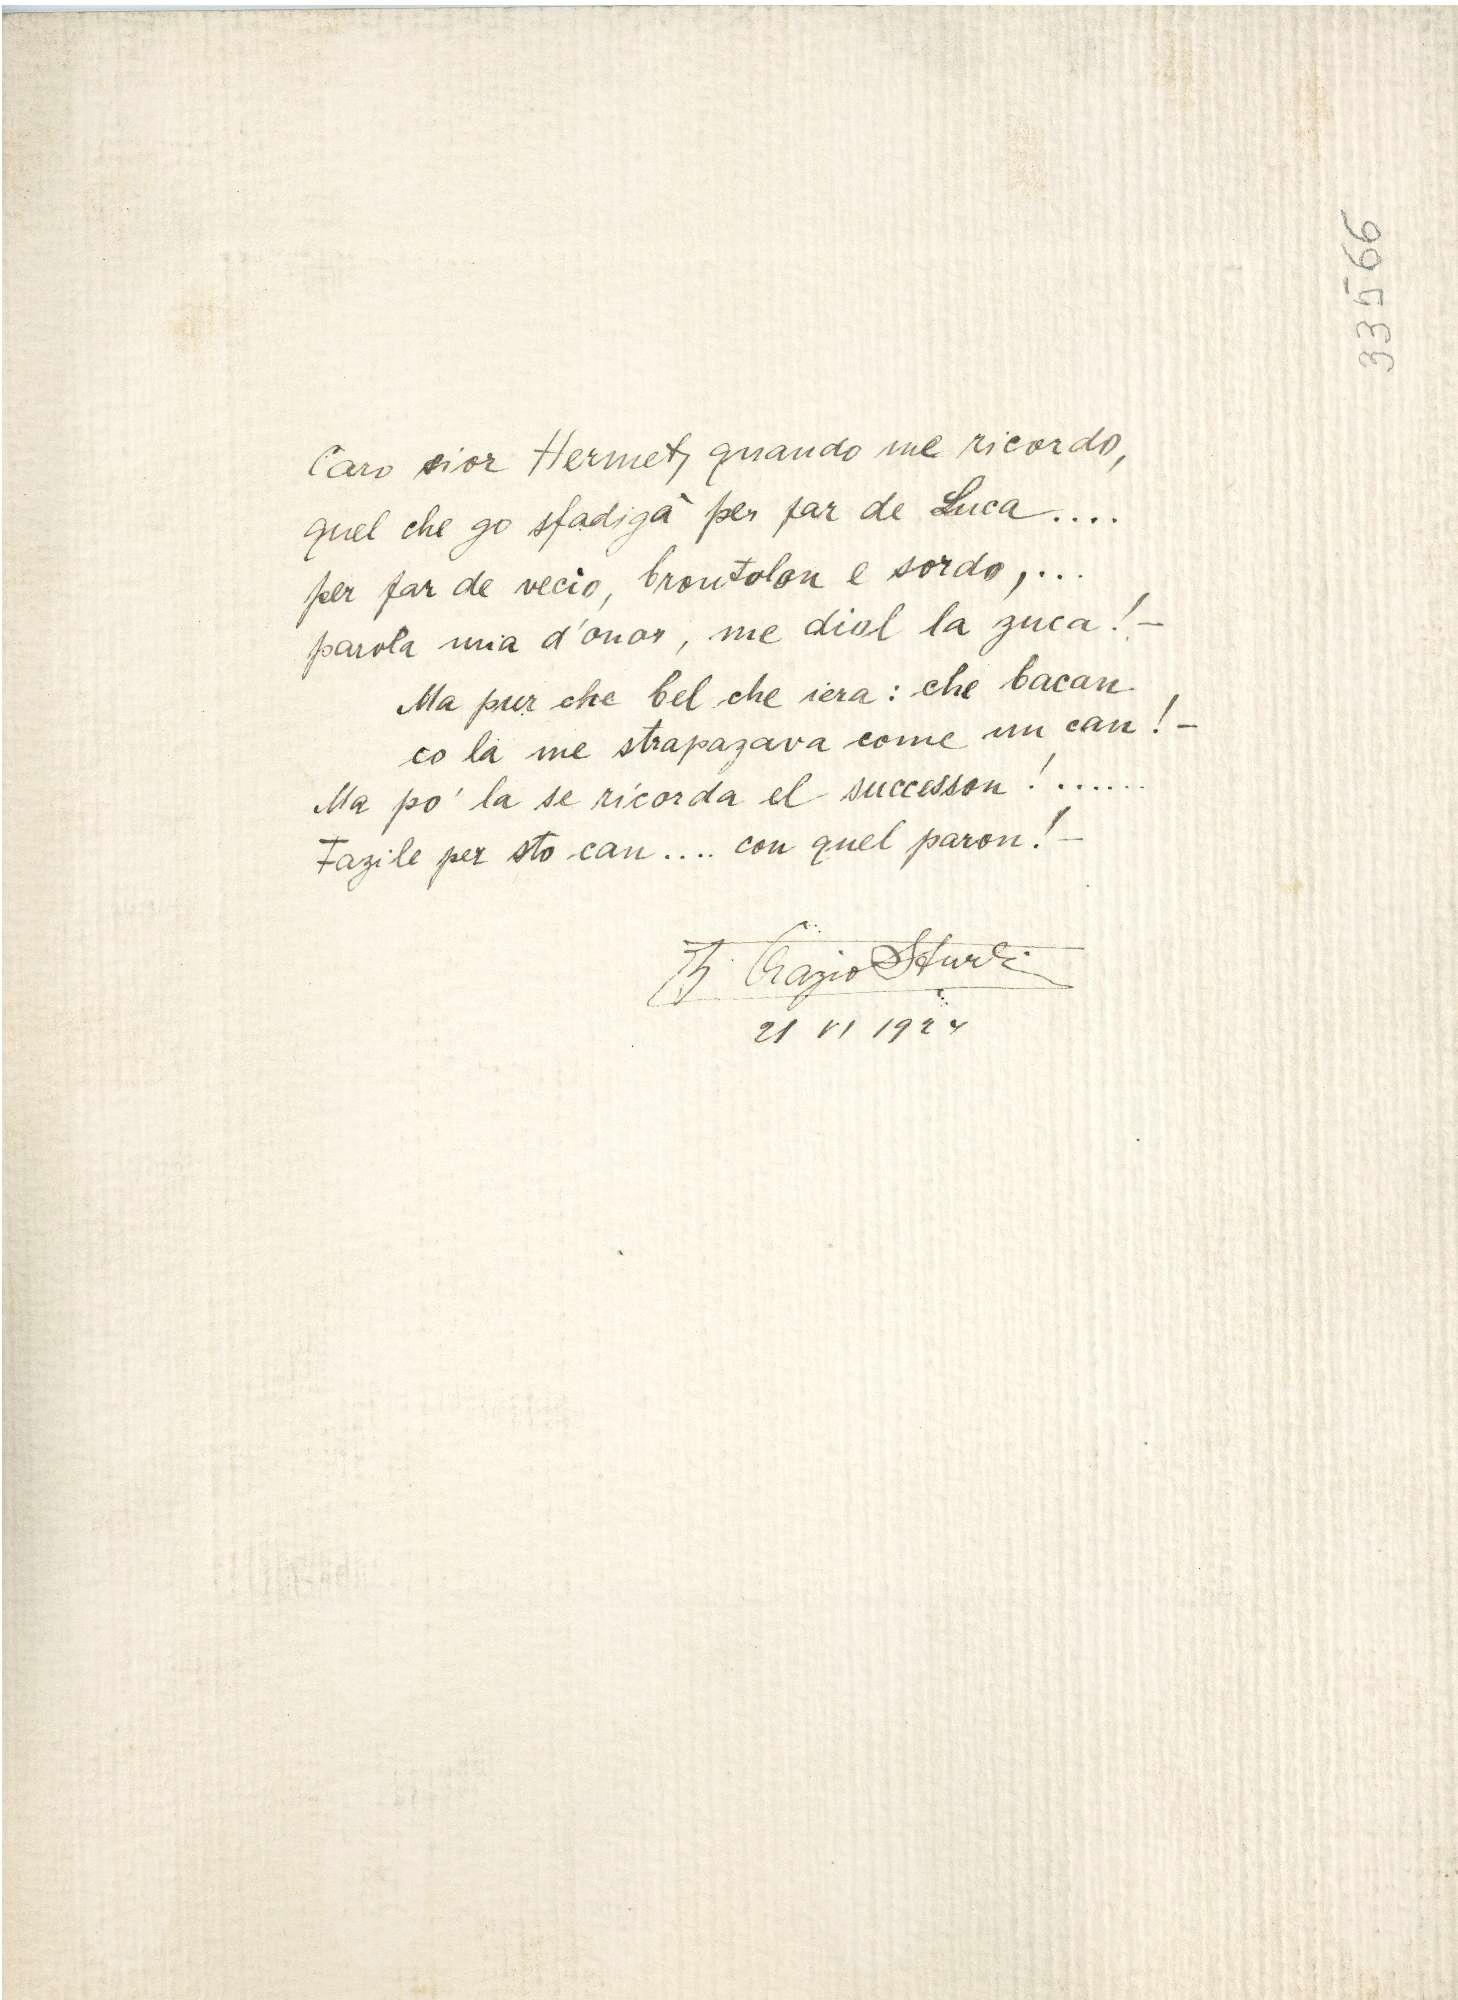 Caro sior Hermet, quando me ricordo,
quel che go sfadigà per far de Luca....
per far de vecio, brontolon e sordo,...
parola mia d'onor, me diol la zuca! –
Ma pur che bel che iera: che bacan
co la me strapazava come un can! –
Ma po' la se ricorda el successon! ......
Fazile per sto can.... con quel paron! –
Orazio
21 VI 1924
33566